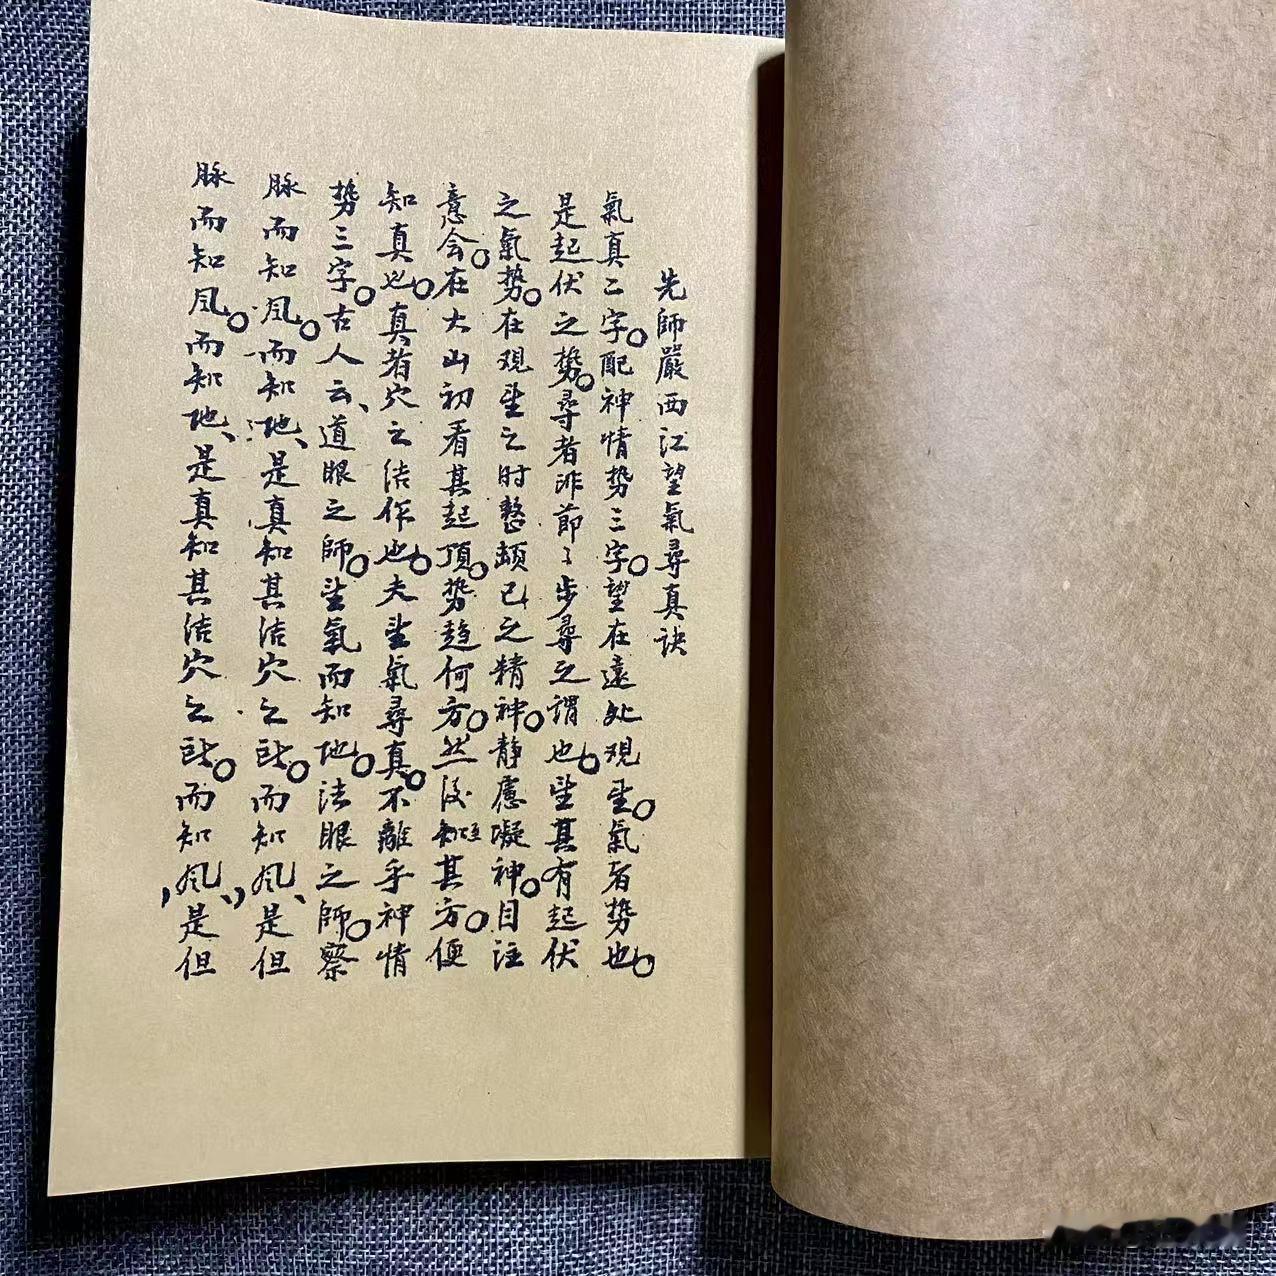 先師嚴西江望氣尋真訣
氣真二字。配神情势三字。望在遠处观望。氣者势也。
是起伏之势。尋者非節々步尋之謂也。望其有起伏
之氣势。在观望之时整頓己之精神。静慮凝神。目注
意会。在大山初看其起頂。势趋何方。然後知其方。便
知真也。真者穴之结作也。夫望氣尋真。不離乎神情
势三字。古人云、道眼之師。望氣而知地。法眼之師。察
脉而知風。而知地、是真知其结穴之所。而知風、是但
脉而知風。而知地、是真知其结穴之所。而知風、是但